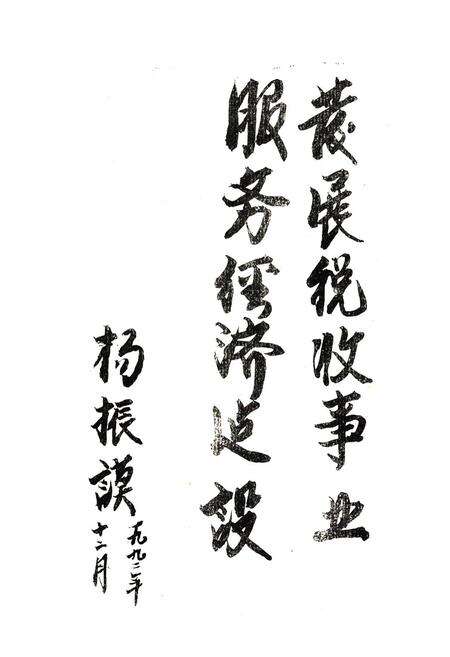 發展税收事业
服务經济建設
杨振谟
一九九二年
十二月